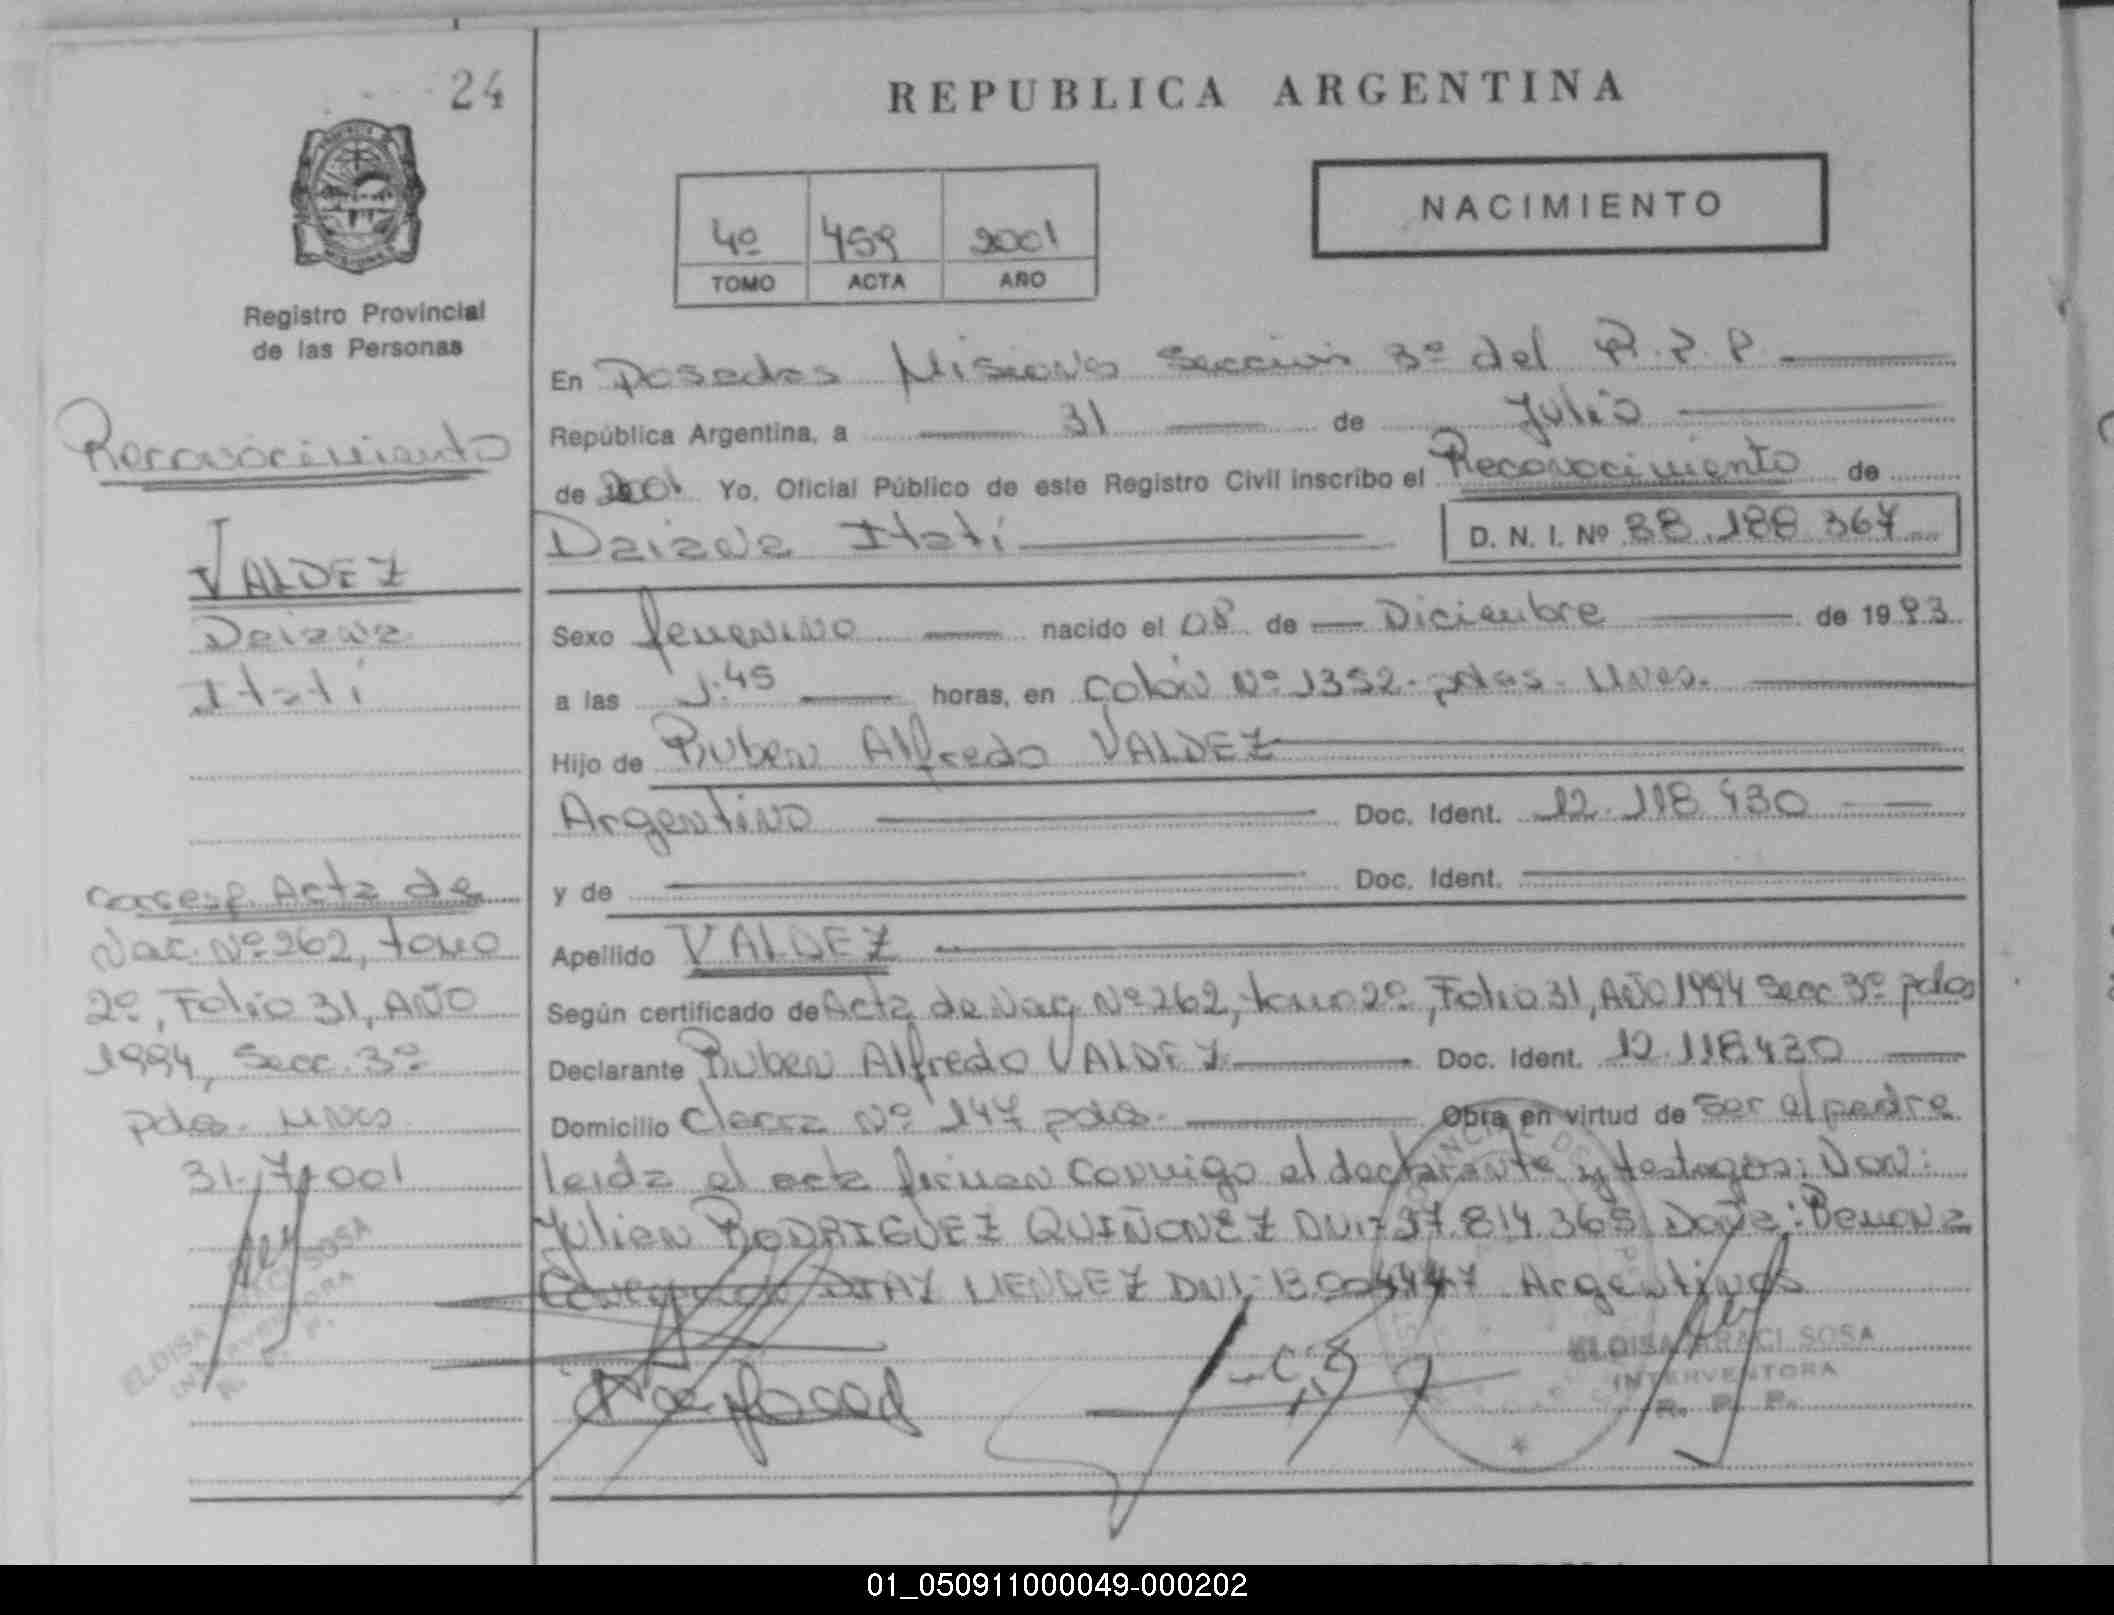 24
REPUBLICA ARGENTINA
NACIMIENTO
4º 459 2001
TOMO ACTA AÑO
Registro Provincial
de las Personas
Reconocimiento
VALDEZ
Daiana
Itatí
Acta de
Nac. Nº 262, tomo
2º, Folio 31, AÑO
1994, Secc. 3º
pdas. Mnes.
31-7-001
ELOISA ARACI SOSA
INTERVENTORA
R. P. P.
En Posadas Misiones Sección 3º del R.P.P.
República Argentina, a 31 de Julio
de 2001 Yo, Oficial Público de este Registro Civil inscribo el Reconocimiento de
Daiana Itatí D. N. I. Nº 38.188.367
Sexo femenino nacido el 08 de Diciembre de 1993
a las 1:45 horas, en Colón Nº 1352 pdas. Mnes.
Hijo de Ruben Alfredo VALDEZ
Argentino Doc. Ident. 12.118.430
y de Doc. Ident.
Apellido VALDEZ
Según certificado de Acta de Nac. Nº 262, tomo 2º, Folio 31, AÑO 1994 Secc 3º pdas
Declarante Ruben Alfredo VALDEZ Doc. Ident. 12.118.430
Domicilio Nº 147 pdas. Obra en virtud de ser el padre
leida el acta firman conmigo el declarante y testigos: Don:
Julian RODRIGUEZ QUIÑONEZ DNI: 37.814.365 Doña: Ramona
MENDEZ DNI: Argentinos
ELOISA ARACI SOSA
INTERVENTORA
R. P. P.
01_050911000049-000202